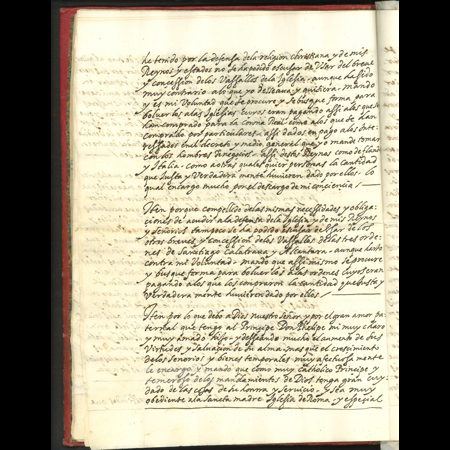 he tenido por la defensa de la religion christiana y de mis
Reynos y estados no se ha podido escusar de Usar del breve
y concession de los Vassallos de la Iglesia - aunque ha sido
muy contrario a lo que yo desseava y quisiera - mando
y es mi Voluntad que se procure y se busque forma para
bolver los a las Iglesias cuyos eran pagando assi a los que los
han comprado para la corona Real como a los que se han
comprado por particulares - assi dados en pago a los inte-
ressados en el decreto y medio general que yo mande tomar
con los hombres de negocios - assi destos Reynos como de flandes
y Italia - como a otras qualesquier personas la cantidad
que justa y Verdadera mente huvieren dado por ellos - lo
qual encargo mucho por el descargo de mi conciencia /
Iten porque compellido de las mismas necessidades y obliga-
ciones de acudir a la defensa de la Iglesia y de mis Reynos
y señorios tampoco se ha podido escusar de Usar de los
otros breves y concession de los Vassallos de las tres orde-
nes de Sanctiago Calatrava y Alcantara - aunque harto
contra mi Voluntad - mando que assi mismo se procure
y busque forma para bolver los a las ordenes cuyos eran
pagando a los que los compraron la cantidad que justa y
Verdadera mente huvieren dado por ellos /
Iten por lo que devo a Dios nuestro Señor y por el gran amor pa-
ternal que tengo al Principe Don Phelipe mi muy charo
y muy amado hijo - y desseando mucho el aumento de sus
Virtudes y salvacion de su alma - mas que el crescimiento
de los Señorios y bienes temporales - muy afectuosa mente
le encargo y mando que como muy catholico Principe y
temeroso de los mandamientos de Dios tenga gran cuy-
dado de las cosas de su honrra y servicio - y sea muy
obediente a la sancta madre Iglesia de Roma - y especial